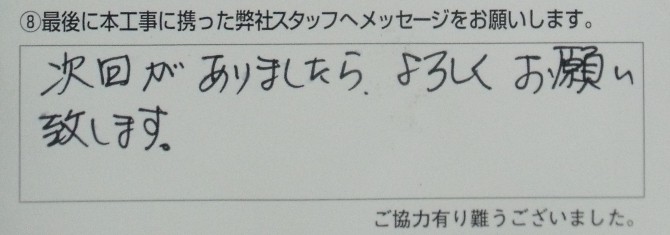 ⑧最後に本工事に携った弊社スタッフへメッセージをお願いします。
次回がありましたら、よろしくお願い
致します。
ご協力有り難うございました。